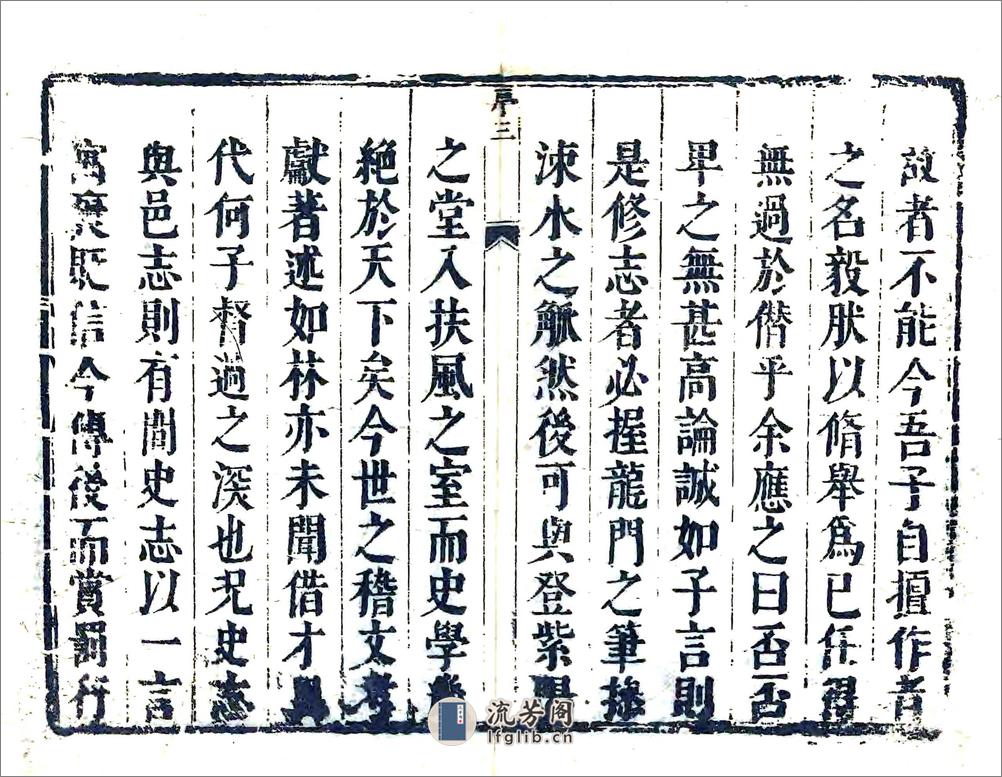 故者不能今吾子自擅作者
之名毅肰以脩舉爲已任得
無過於僭乎余應之曰否否
卑之無甚高論誠如子言則
是修志者必握龍門之筆操
涑水之觚然後可與登紫陽
序三
之堂入扶風之室而史學幾
絕於天下矣今世之稽文考
獻著述如林亦未聞借才異
代何子督過之深也况史志
與邑志則有間史志以一言
寓褒貶信今傳後而賞罰行
流芳阁
lfglib.cn